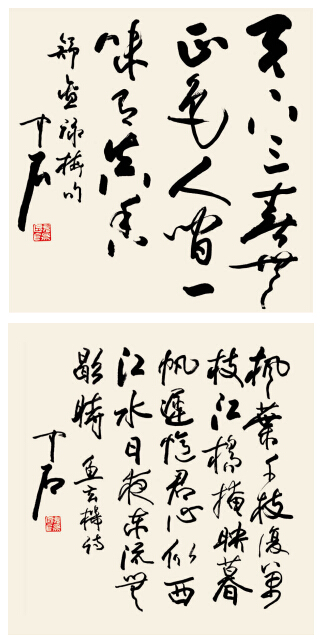 天下三春無
正色人間一
味有真香
舒亶詠梅句
中石
楓葉千枝復萬
枝江橋掩映暮
帆遲憶君心似西
江水日夜東流無
歇時 魚玄機詩
中石